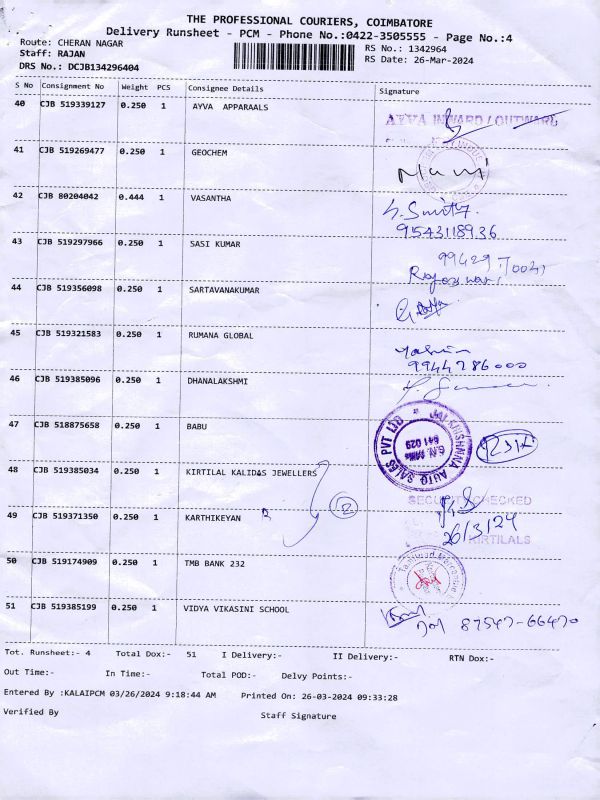 THE PROFESSIONAL COURIERS, COIMBATORE
Delivery Runsheet - PCM - Phone No.:0422-3505555 - Page No.:4
Route: CHERAN NAGAR
Staff: RAJAN
DRS No.: DCJB134296404
RS No.: 1342964
RS Date: 26-Mar-2024
S No Consignment No Weight PCS Consignee Details Signature
40 CJB 519339127 0.250 1 AYVA APPARAALS
AYVA INWARD / OUTWARD
41 CJB 519269477 0.250 1 GEOCHEM
Mani
42 CJB 80204042 0.444 1 VASANTHA
S. Smitty.
9543118936
43 CJB 519297966 0.250 1 SASI KUMAR
44 CJB 519356098 0.250 1 SARTAVANAKUMAR
45 CJB 519321583 0.250 1 RUMANA GLOBAL
9944286000
46 CJB 519385096 0.250 1 DHANALAKSHMI
47 CJB 518875658 0.250 1 BABU
JAI KRISHNAA AUTO SALES PVT LTD
641 029
48 CJB 519385034 0.250 1 KIRTILAL KALIDAS JEWELLERS
SECURITY CHECKED
49 CJB 519371350 0.250 1 KARTHIKEYAN R
26/3/24
KIRTILALS
50 CJB 519174909 0.250 1 TMB BANK 232
Tamilnad Mercantile
51 CJB 519385199 0.250 1 VIDYA VIKASINI SCHOOL
87547-66470
Tot. Runsheet:- 4 Total Dox:- 51 I Delivery:- II Delivery:- RTN Dox:-
Out Time:- In Time:- Total POD:- Delvy Points:-
Entered By :KALAIPCM 03/26/2024 9:18:44 AM Printed On: 26-03-2024 09:33:28
Verified By Staff Signature